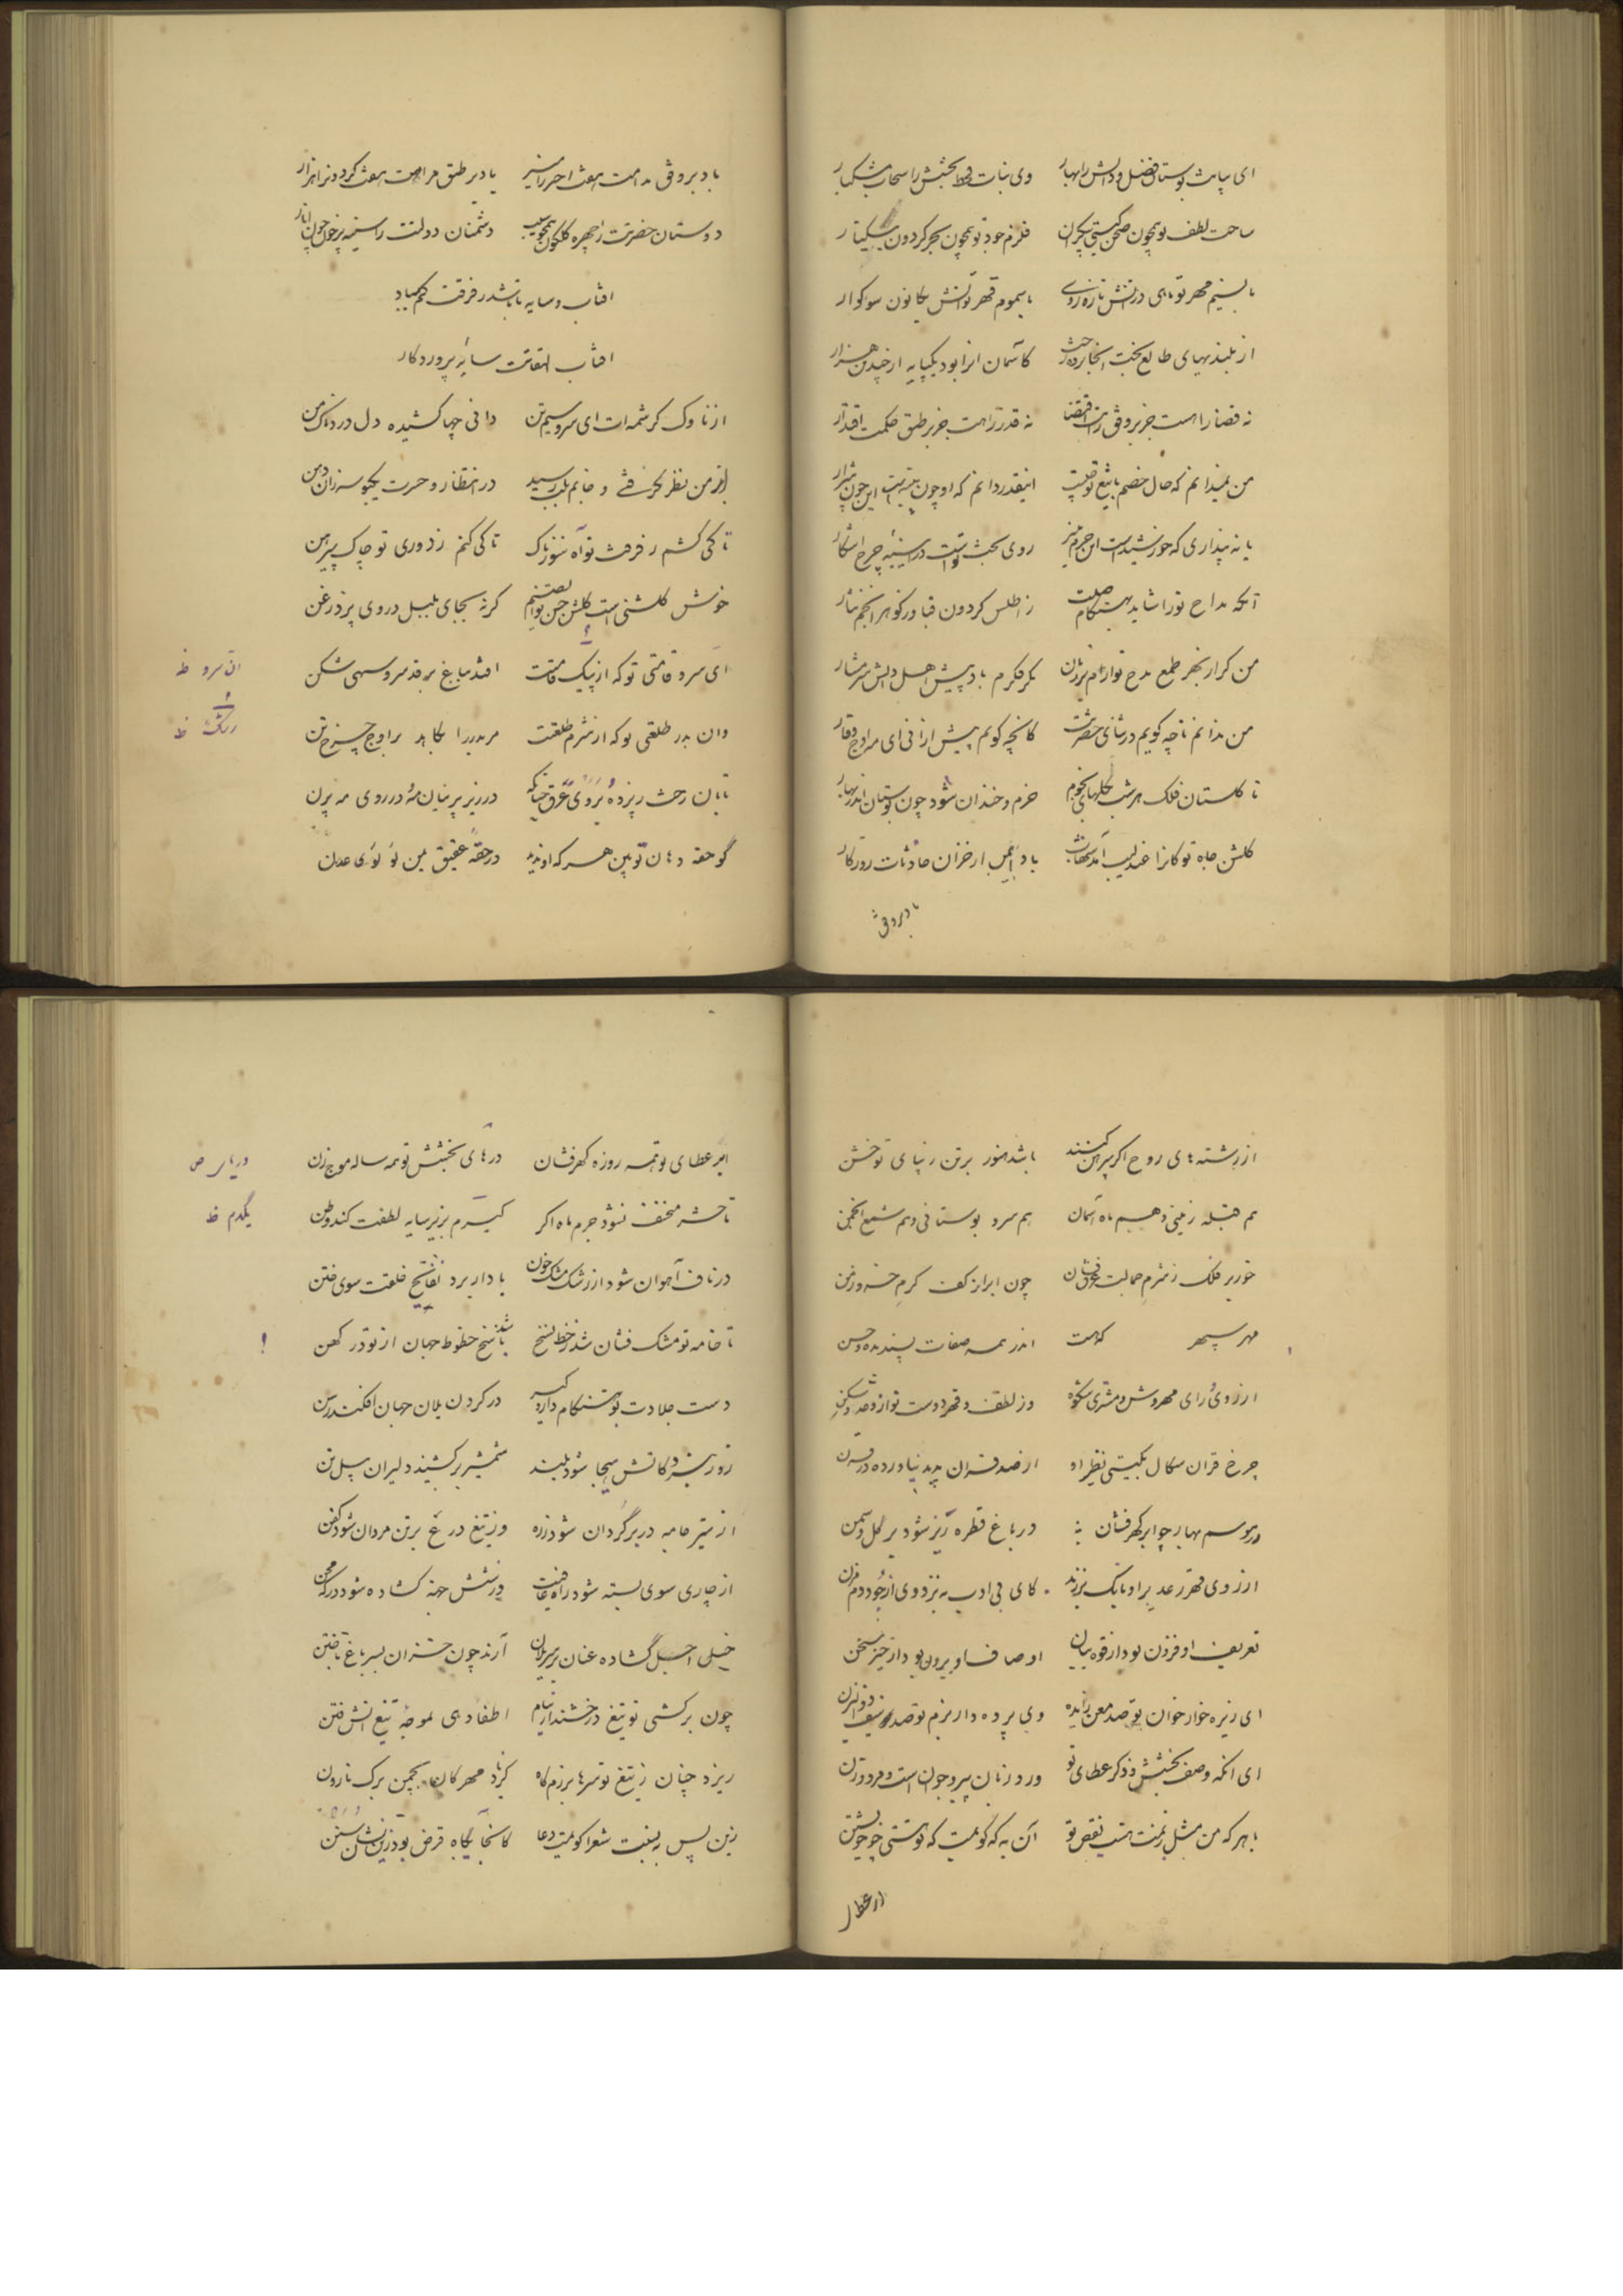 ای بباغت بوستان فضل و دانش را بهار وی نبات قحط بخشش را سحاب مشکبار
ساحت لطف تو همچون صحن گیتی بیکران قلزم جود تو همچون بحر گردون بیکنار
با نسیم مهر تو ماهی در آتش تازه روی با سموم قهر تو آتش بکانون سوکوار
از بلندیهای طالع بخت کآسمان آنرا بود یکپایه از چندین هزار
نه قضا را هست جز بر وفق رایت اقتضا نه قدر را هست جز بر طبق حکمت اقتدار
من نمیدانم که حال خصم با تیغ تو چیست اینقدر دانم که او چون پنبه است این چون شرار
یا نه پنداری که خورشید است این جرم منیر روی بخت تو است در آیینه چرخ آشکار
آنکه مداح تو را شاید بهنگام صلت ز اطلس کردون قبا و ز گوهر انجم نثار
من کر از بهر طمع مدح تو آرم بر زبان بکر فکرم باد پیش اهل دانش شرمسار
من ندانم تا چه کویم در ثنای حضرتت کانچه کویم بیش از آنی ای مه اوج وقار
تا کلستان فلک هر شب بکلهای نجوم خرم و خندان شود چون بوستان اندر بهار
کلشن جاه تو کانرا عندلیب آمد سحاب باد ایمن از خزان حادثات روزکار
باد بر وفق
باد بر وفق مدامت هفت اختر را مسیر باد بر طبق مرامت هفت کردون را مدار
دوستان حضرتت را چهره کلگون همچو سیب دشمنان دولتت را سینه پر خون چون انار
آفتاب و سایه تا باشد ز فرقت کم مباد
آفتاب التفات سایه پروردکار
از ناوک کرشمه ات ای سرو سیم تن دانی چها کشیده دل دردناک من
از من نظر گرفتی و جانم بلب رسید در انتظار و حسرت یکبوسه زان دهن
تا کی کشم ز فرقت تو آه سوزناک تا کی کنم ز دوری تو چاک پیرهن
خوش کلشنی است کلشن حسن تو ای صنم کر نه بجای بلبل در وی پرد زغن
ای سرو قامتی تو که از پیک قامتت افتد بباغ بر قد سرو سهی شکن
ان سرو ظ
وان بدر طلعتی تو که از شرم طلعتت مر بدر را بکاهد بر اوج چرخ تن
رشک ظ
تابان رخت ز پرده بروی عرق چنانکه در زیر پرنیان مه و در روی مه پرن
گو حقه دهان تو بین هر که او ندید در حقه عقیق یمن لؤلؤی عدن
از رشته های روح اگر پیرهن کنند باشد هنوز بر تن زیبای تو خشن
هم قبله زمینی و هم ماه آسمان هم سرو بوستانی و هم شمع انجمن
خور بر فلک ز شرم جمالت عرق فشان چون ابر از کف کرم خسرو زمن
مهر سپهر که هست اندر همه صفات پسندیده و حسن
از روی رای مهروش و مشتری شکوه وز لطف و قهر دوست نواز و عدو شکن
چرخ قران سکال بگیتی نظیر او از صد قران پدید نیاورده در قرن
در موسم بهار چو ابر گهرفشان در باغ قطره ریز شود بر گل و سمن
از روی قهر رعد بر او بانک برزند کای بی ادب به نزد وی از جود دم مزن
تعریف او فزون بود از قوه بیان اوصاف او برون بود از حیز سخن
ای ریزه خوار خوان تو صد معن زایده وی پرده دار بزم تو صد سیف ذوالیزن
ای آنکه وصف بخشش و ذکر عطای تو ورد زبان پیر و جوان است و مرد و زن
با هر که من مثل زنمت هست نقص تو آن به که گویمت که تو هستی چو خویشتن
ابر عطا
ابر عطای تو همه روزه گهرفشان درهای بخشش تو همه ساله موج زن
دریای ص
تا حشر منخسف نشود جرم ماه اکر یکدم بزیر سایه لطفت کند وطن
یکدم ظ
در ناف آهوان شود از رشک مشک خون باد ار برد نفایح خلقت سوی ختن
تا خامه تو مشک فشان شد ز خط نسخ شد نسخ خطوط جهان از نو و کهن
دست جلادت تو بهنگام دار و گیر در کردن یلان جهان افکند رسن
روز نبرد کاتش هیجا شود بلند شمشیر برکشیند دلیران پیل تن
از تیر جامه در بر گردان شود زره وز تیغ درع بر تن مردان شود کفن
از چار سوی بسته شود راه عافیت وز شش جهة کشاده شود درکه محن
خیلی اجل گشاده عنان بر سر یلان آرند چون خزان بسر باغ تاختن
چون برکشی تو تیغ درخشنده از نیام اطفا دهی بموجه تیغ آتش فتن
ریزد چنان ز تیغ تو سرها برزم کاه کز باد مهرکان بچمن برک نارون
زین پس به نسبت شعرا کویمت دعا